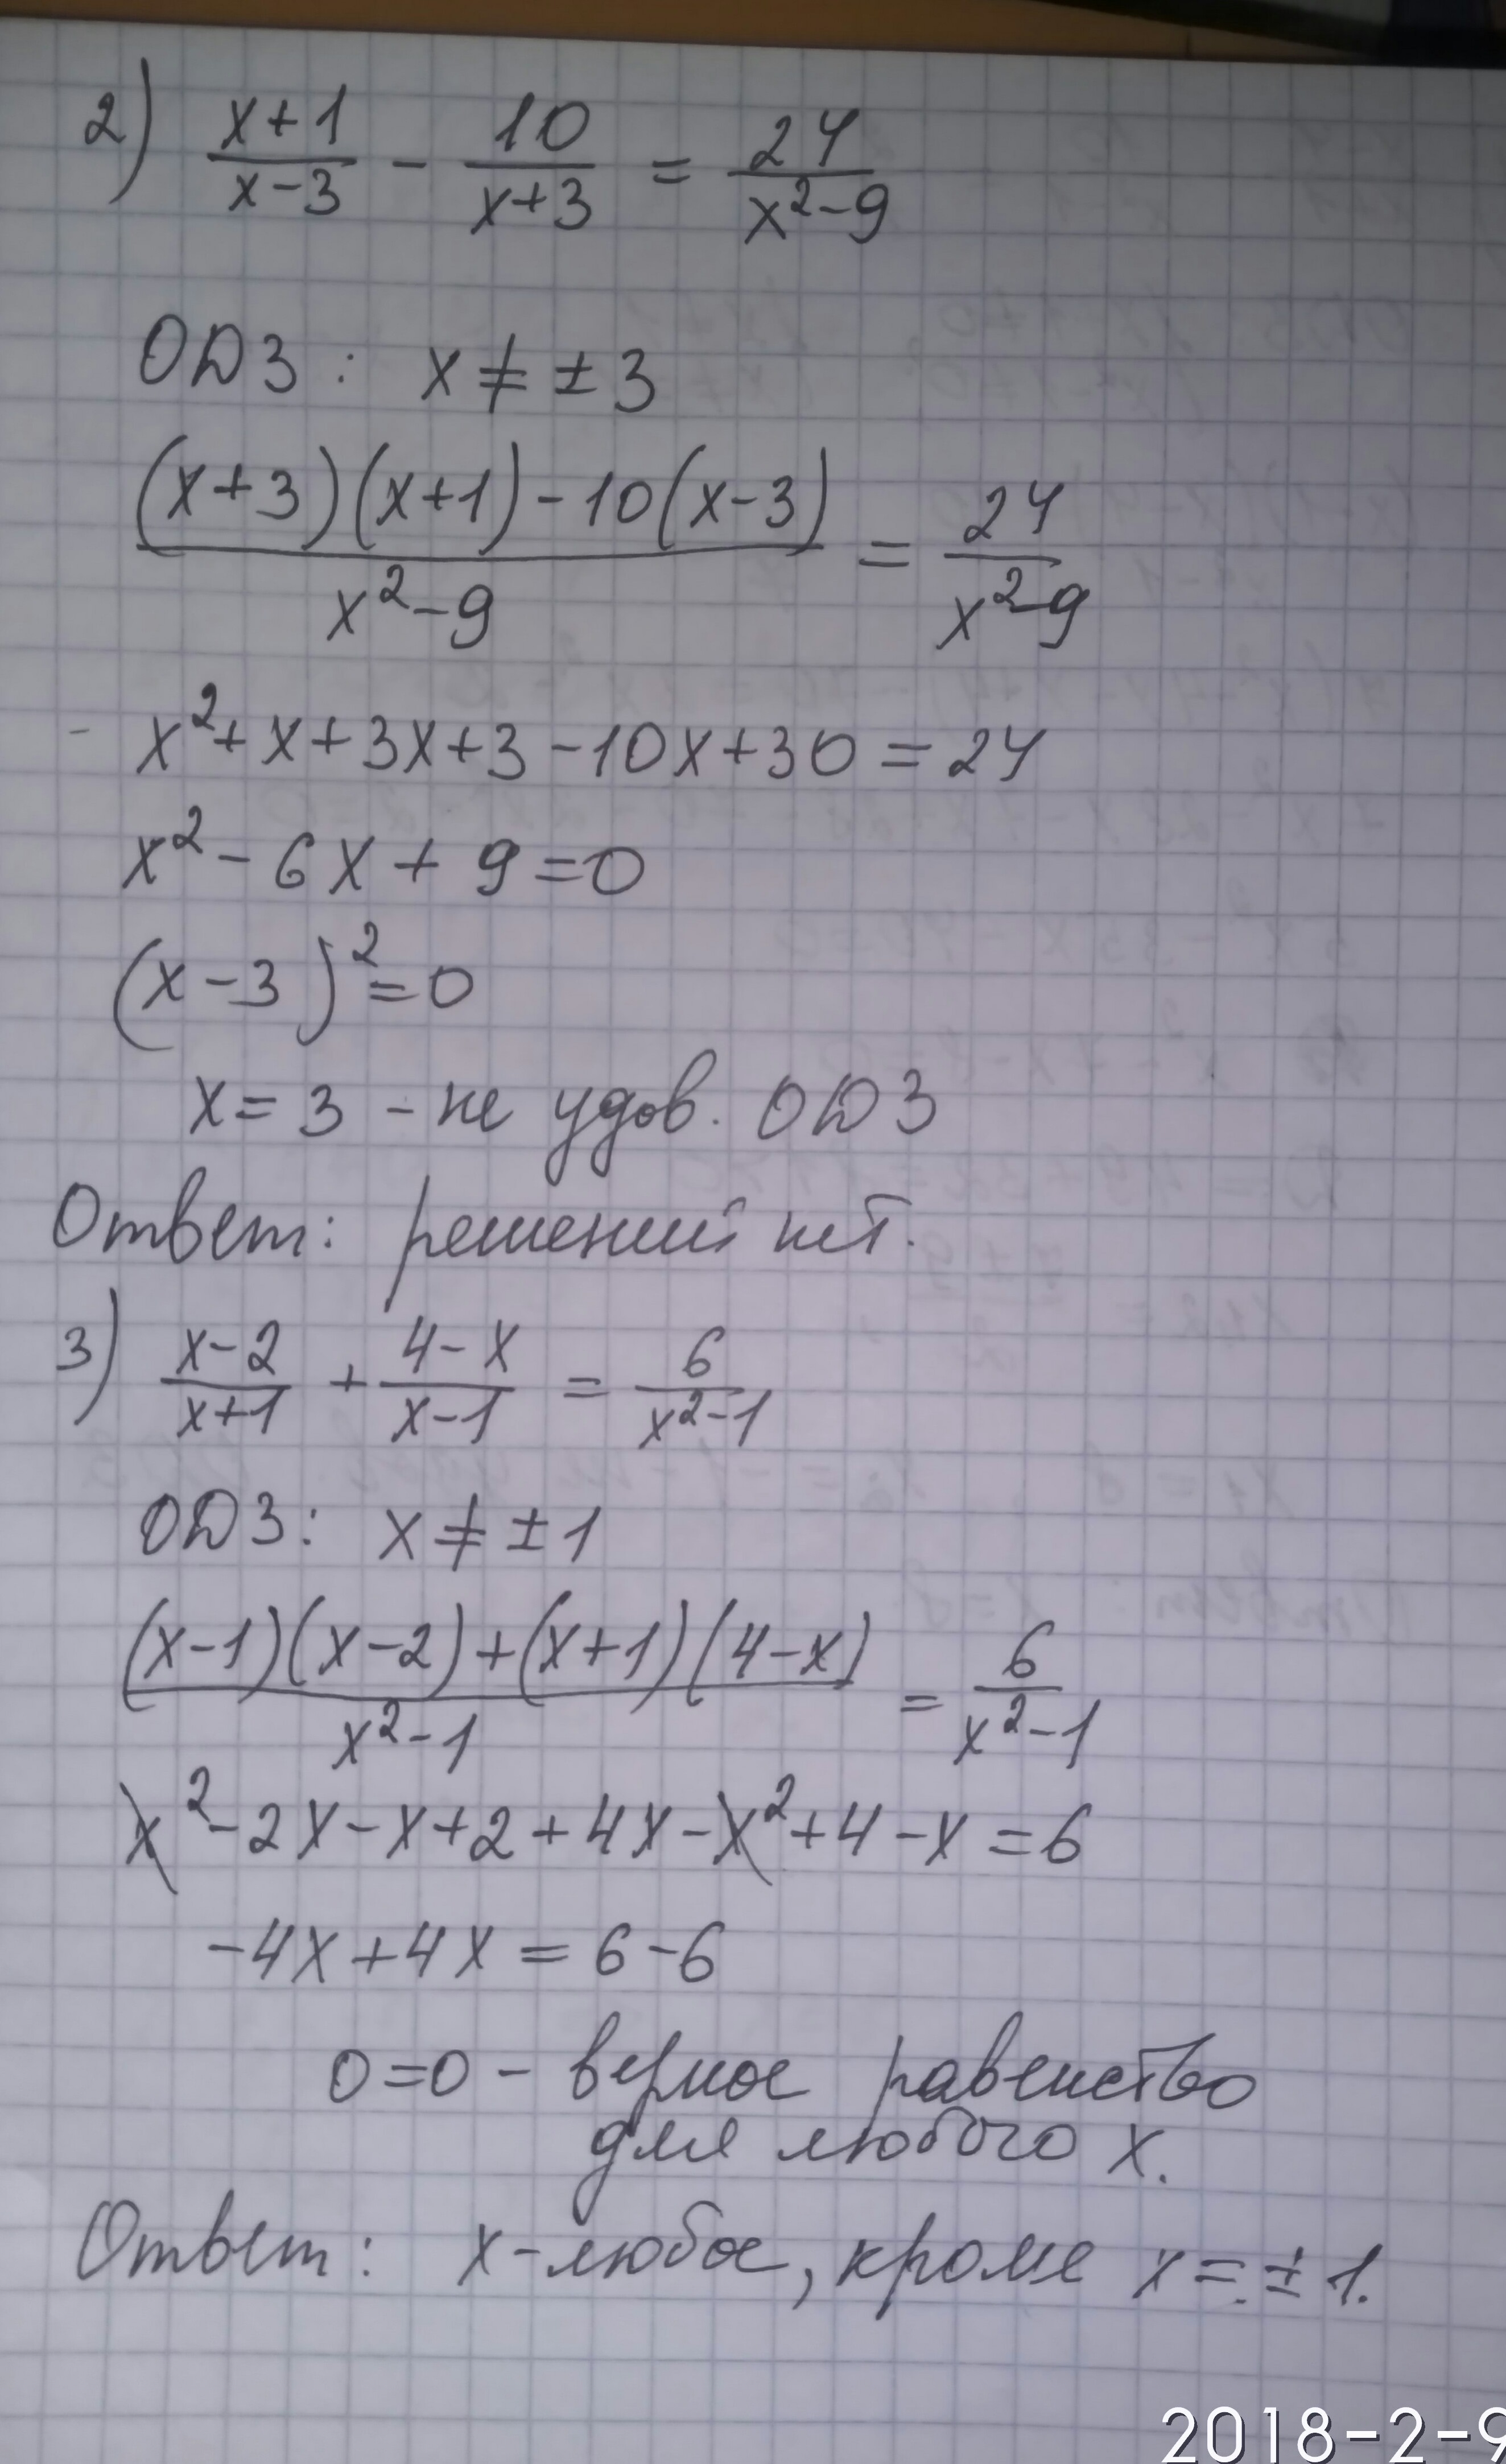 2) (x+1)/(x-3) - 10/(x+3) = 24/(x²-9)
ОДЗ: x ≠ ±3
((x+3)(x+1)-10(x-3))/(x²-9) = 24/(x²-9)
x²+x+3x+3-10x+30=24
x²-6x+9=0
(x-3)²=0
x=3 - не удов. ОДЗ
Ответ: решений нет.
3) (x-2)/(x+1) + (4-x)/(x-1) = 6/(x²-1)
ОДЗ: x ≠ ±1
((x-1)(x-2)+(x+1)(4-x))/(x²-1) = 6/(x²-1)
x²-2x-x+2+4x-x²+4-x=6
-4x+4x=6-6
0=0 - верное равенство
для любого x.
Ответ: x-любое, кроме x=±1.
2018-2-9